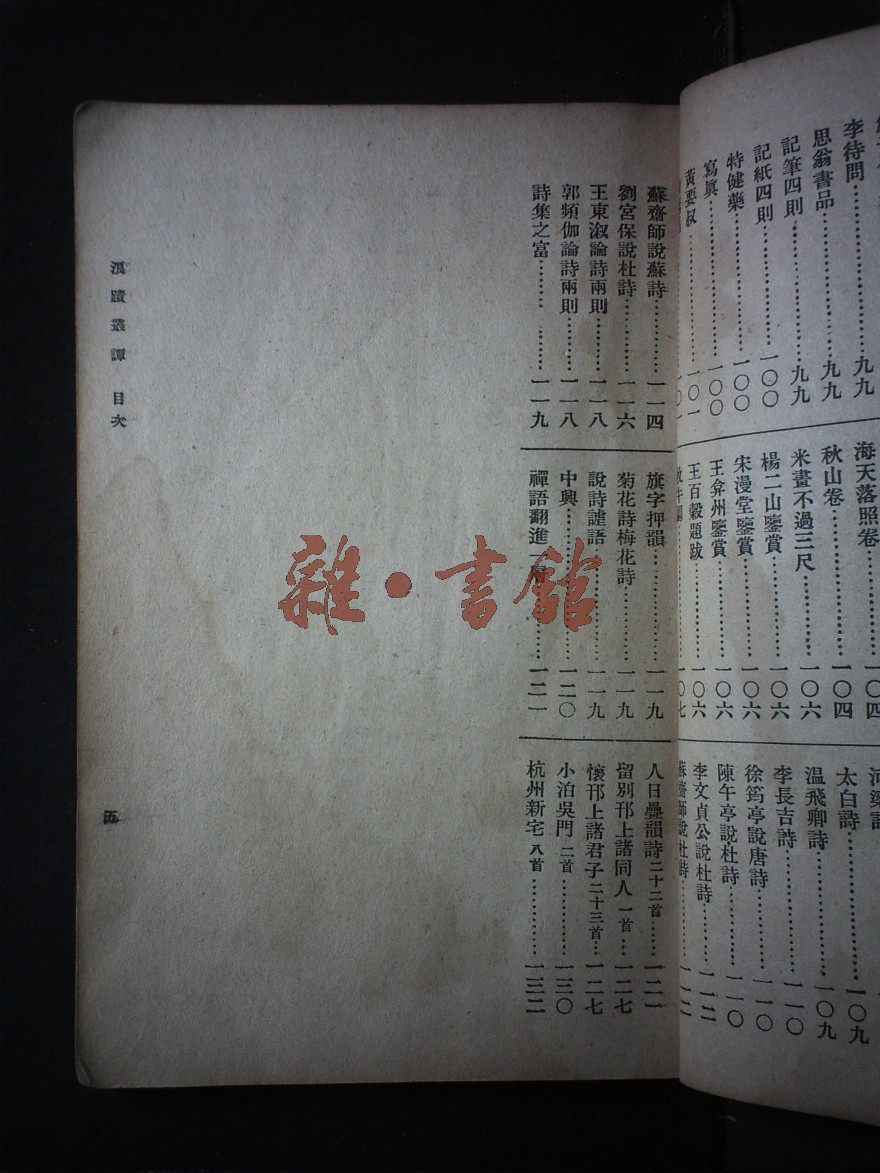 李待問⋯⋯⋯⋯九九
思翁書品⋯⋯⋯⋯九九
記筆四則⋯⋯⋯⋯九九
記紙四則⋯⋯⋯⋯一〇〇
特健藥⋯⋯⋯⋯一〇〇
寫眞⋯⋯⋯⋯一〇〇
黃要叔⋯⋯⋯⋯一〇一
海天落照卷⋯⋯⋯⋯一〇四
秋山卷⋯⋯⋯⋯一〇四
米畫不過三尺⋯⋯⋯⋯一〇六
楊二山鑒賞⋯⋯⋯⋯一〇六
宋漫堂鑒賞⋯⋯⋯⋯一〇六
王弇州鑒賞⋯⋯⋯⋯一〇六
王百穀題跋⋯⋯⋯⋯一〇六
牧牛圖⋯⋯⋯⋯一〇七
太白詩⋯⋯⋯⋯一〇九
温飛卿詩⋯⋯⋯⋯一〇九
李長吉詩⋯⋯⋯⋯一一〇
徐筠亭說唐詩⋯⋯⋯⋯一一〇
陳午亭說杜詩⋯⋯⋯⋯一一〇
李文貞公說杜詩⋯⋯⋯⋯一一二
蘇齋師說杜詩⋯⋯⋯⋯一一二
蘇齋師說蘇詩⋯⋯⋯⋯一一四
劉宮保說杜詩⋯⋯⋯⋯一一六
王東溆論詩兩則⋯⋯⋯⋯一一八
郭頻伽論詩兩則⋯⋯⋯⋯一一八
詩集之富⋯⋯⋯⋯一一九
旗字押韻⋯⋯⋯⋯一一九
菊花詩梅花詩⋯⋯⋯⋯一一九
說詩謔語⋯⋯⋯⋯一一九
中興⋯⋯⋯⋯一二〇
禪語翻進一層⋯⋯⋯⋯一二一
人日疊韻詩二十二首⋯⋯一二一
留別邗上諸同人一首⋯⋯一二七
懷邗上諸君子二十三首⋯一二七
小泊吳門二首⋯⋯⋯⋯一三〇
杭州新宅八首⋯⋯⋯⋯一三二
浪蹟叢譚 目次
五
雜·書館